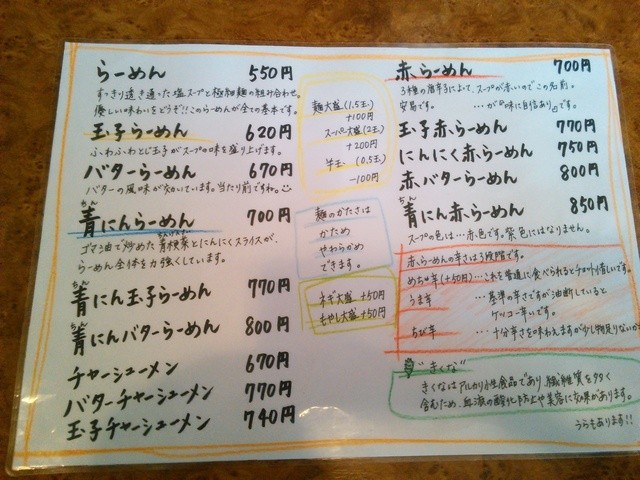 らーめん 550円
すっきり透き通った塩スープと極細麺の組み合わせ。
優しい味わいをどうぞ!!このらーめんが全ての基本です。
玉子らーめん 620円
ふわふわとじ玉子がスープの味を盛り上げます。
バターらーめん 670円
バターの風味が効いています。当たり前ですね。
青にんらーめん 700円
ちん
ゴマ油で炒めた青梗菜とにんにくスライスが、
らーめん全体を力強くしています。
青にん玉子らーめん 770円
ちん
青にんバターらーめん 800円
ちん
チャーシューメン 670円
バターチャーシューメン 770円
玉子チャーシューメン 740円
麺大盛(1.5玉)
+100円
スーパー大盛(2玉)
+200円
半玉 (0.5玉)
-100円
麺のかたさは
かため
やわらかめ
できます。
ネギ大盛 +50円
もやし大盛 +50円
赤らーめん 700円
3種の唐辛子によって、スープが赤いのでこの名前。
安易です。 …が"味に自信あり"です。
玉子赤らーめん 770円
にんにく赤らーめん 750円
赤バターらーめん 800円
青にん赤らーめん 850円
ちん
スープの色は…赤色です。紫色にはなりません。
赤らーめんの辛さは3段階です。
めちゃ辛(+50円)…これを普通に食べられるとチョット悔しいです。
うま辛 …基準の辛さですが油断していると
ケッコー辛いです。
ちび辛 …十分辛さを味わえますが少し物足りないか
"きくな"
きくなはアルカリ性食品であり、繊維質を多く
含むため、血液の酸化防止や美容に効果があります。
うらもあります!!